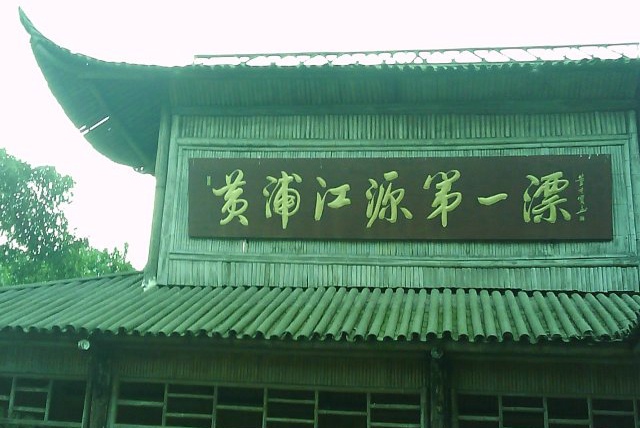 黄浦江源第一漂